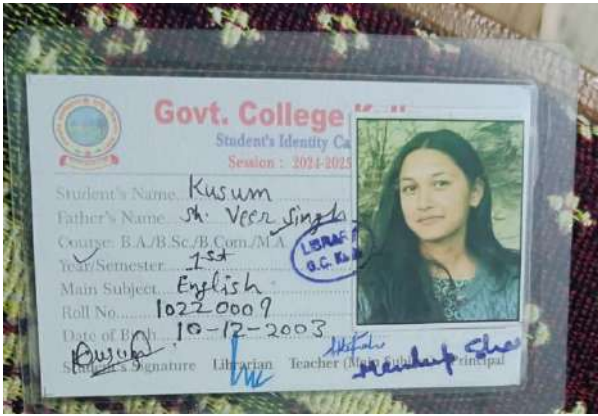 Govt. College
Student's Identity Ca
Session : 2024-2025
Student's Name Kusum
Father's Name Sh. Veer Singh
Course: B.A./B.Sc./B.Com./M.A.
Year/Semester 1st
Main Subject English
Roll No. 10220009
Date of Birth 10-12-2003
LIBRAR
G.C.
Student's Signature Librarian Teacher (Main Subject) Principal